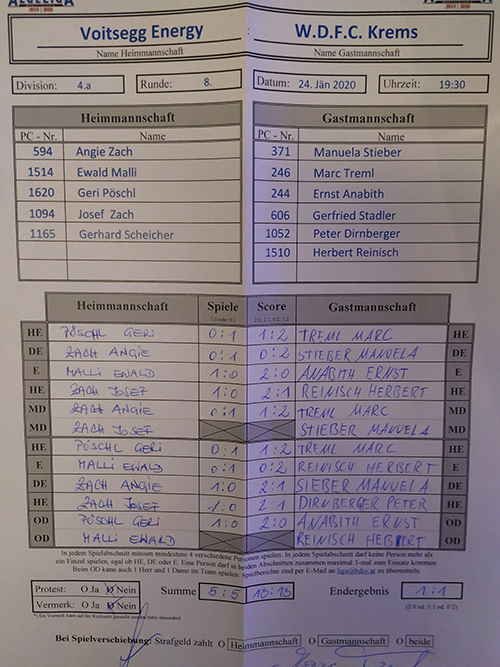 2019 | 2020
2019 | 2020
Voitsegg Energy : W.D.F.C. Krems
Name Heimmannschaft Name Gastmannschaft
Division: 4.a Runde: 8. Datum: 24. Jän 2020 Uhrzeit: 19:30
Heimmannschaft Gastmannschaft
PC - Nr. Name PC - Nr. Name
594 Angie Zach 371 Manuela Stieber
1514 Ewald Malli 246 Marc Treml
1620 Geri Pöschl 244 Ernst Anabith
1094 Josef Zach 606 Gerfried Stadler
1165 Gerhard Scheicher 1052 Peter Dirnberger
1510 Herbert Reinisch
Heimmannschaft Spiele Score Gastmannschaft
HE PÖSCHL GERI 0:1 1:2 TREML MARC HE
DE ZACH ANGIE 0:1 0:2 STIEBER MANUELA DE
E MALLI EWALD 1:0 2:0 ANABITH ERNST E
HE ZACH JOSEF 1:0 2:1 REINISCH HERBERT HE
MD ZACH ANGIE 0:1 1:2 TREML MARC MD
MD ZACH JOSEF STIEBER MANUELA MD
HE PÖSCHL GERI 0:1 1:2 TREML MARC HE
E MALLI EWALD 0:1 0:2 REINISCH HERBERT E
DE ZACH ANGIE 1:0 2:1 SIEBER MANUELA DE
HE ZACH JOSEF 1:0 2:1 DIRNBERGER PETER HE
OD PÖSCHL GERI 1:0 2:0 ANABITH ERNST OD
OD MALLI EWALD REINISCH HERBERT OD
In jedem Spielabschnitt müssen mindestens 4 verschiedene Personen spielen. In jedem Spielabschnitt darf keine Person mehr als
ein Einzel spielen, egal ob HE, DE oder E. Eine Person darf in beiden Abschnitten zusammen maximal 3-mal zum Einsatz kommen.
Beim OD kann auch 1 Herr und 1 Dame im Team spielen. Spielberichte sind per E-Mail an liga@bdsv.at zu übermitteln.
Protest: O Ja O Nein Summe 5:5 Endergebnis 1:1
Vermerk: O Ja O Nein (2:0 od. 1:1 od. 0:2)
Bei Spielverschiebung: Strafgeld zahlt O Heimmannschaft O Gastmannschaft O beide